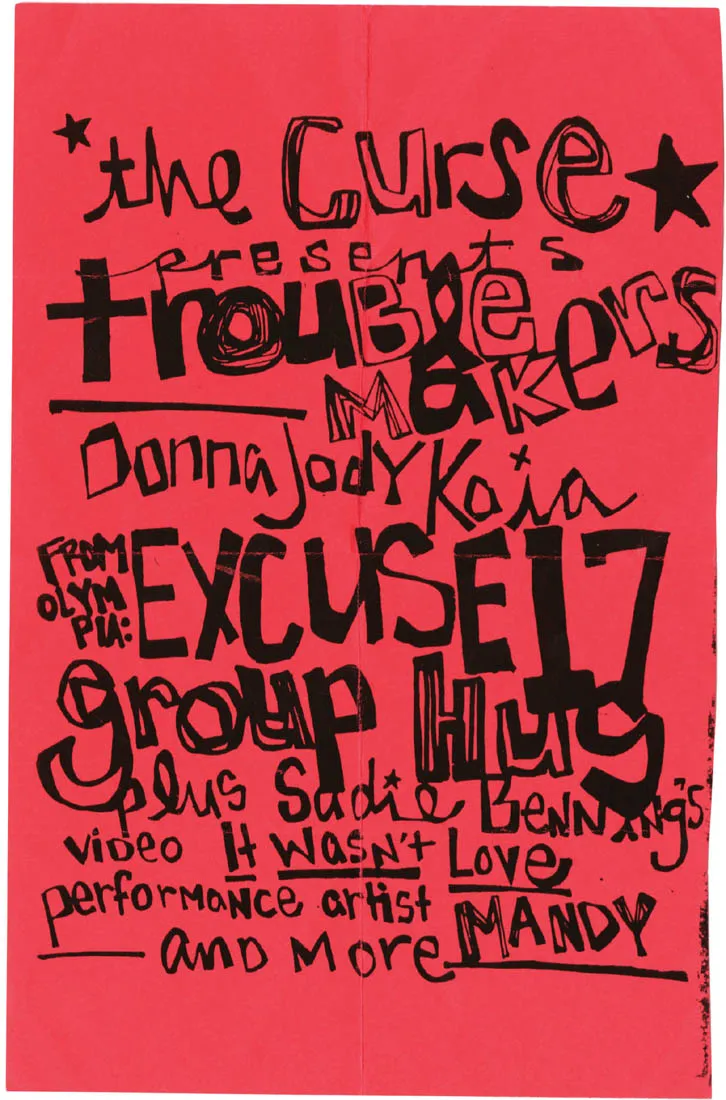 the Curse
presents
trouBle
MaKers
Donna Jody Kaia
FROM
OLYM
PIA:
EXCUSE 17
group Hug
plus Sadie BENNiNg's
video It Wasn't Love
performaNce artist
MANDY
and More